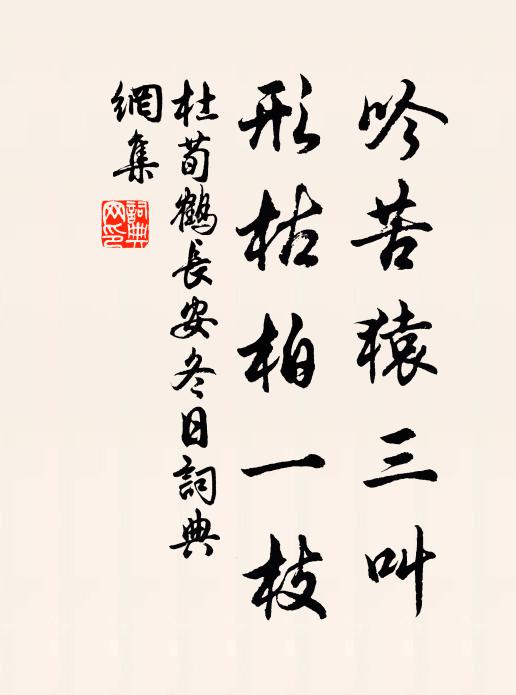 吟苦猿三叫
形枯柏一枝
杜荀鶴長安冬日詞典
網集
詞典
网印